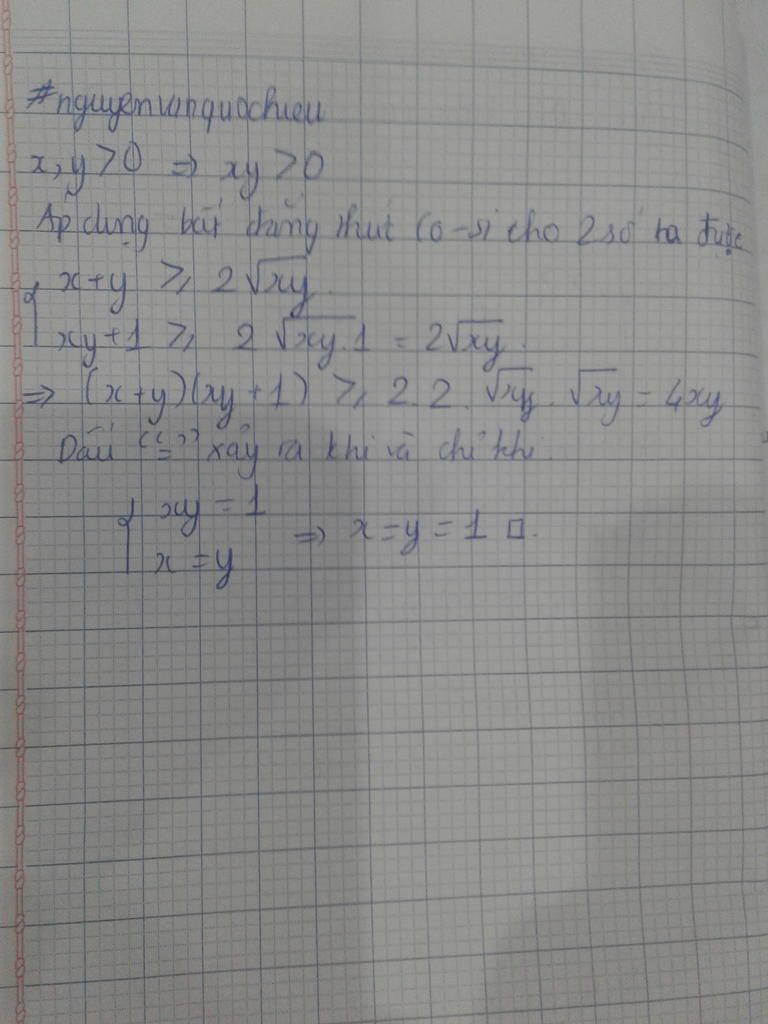 #nguyenvanquochieu
x, y > 0 => xy > 0
Áp dụng bất đẳng thức Cô-si cho 2 số ta được
{ x+y ≥ 2√xy
xy+1 ≥ 2√xy.1 = 2√xy.
=> (x+y)(xy+1) ≥ 2.2.√xy.√xy = 4xy
Dấu "=" xảy ra khi và chỉ khi
{ xy = 1
x = y => x = y = 1 □.